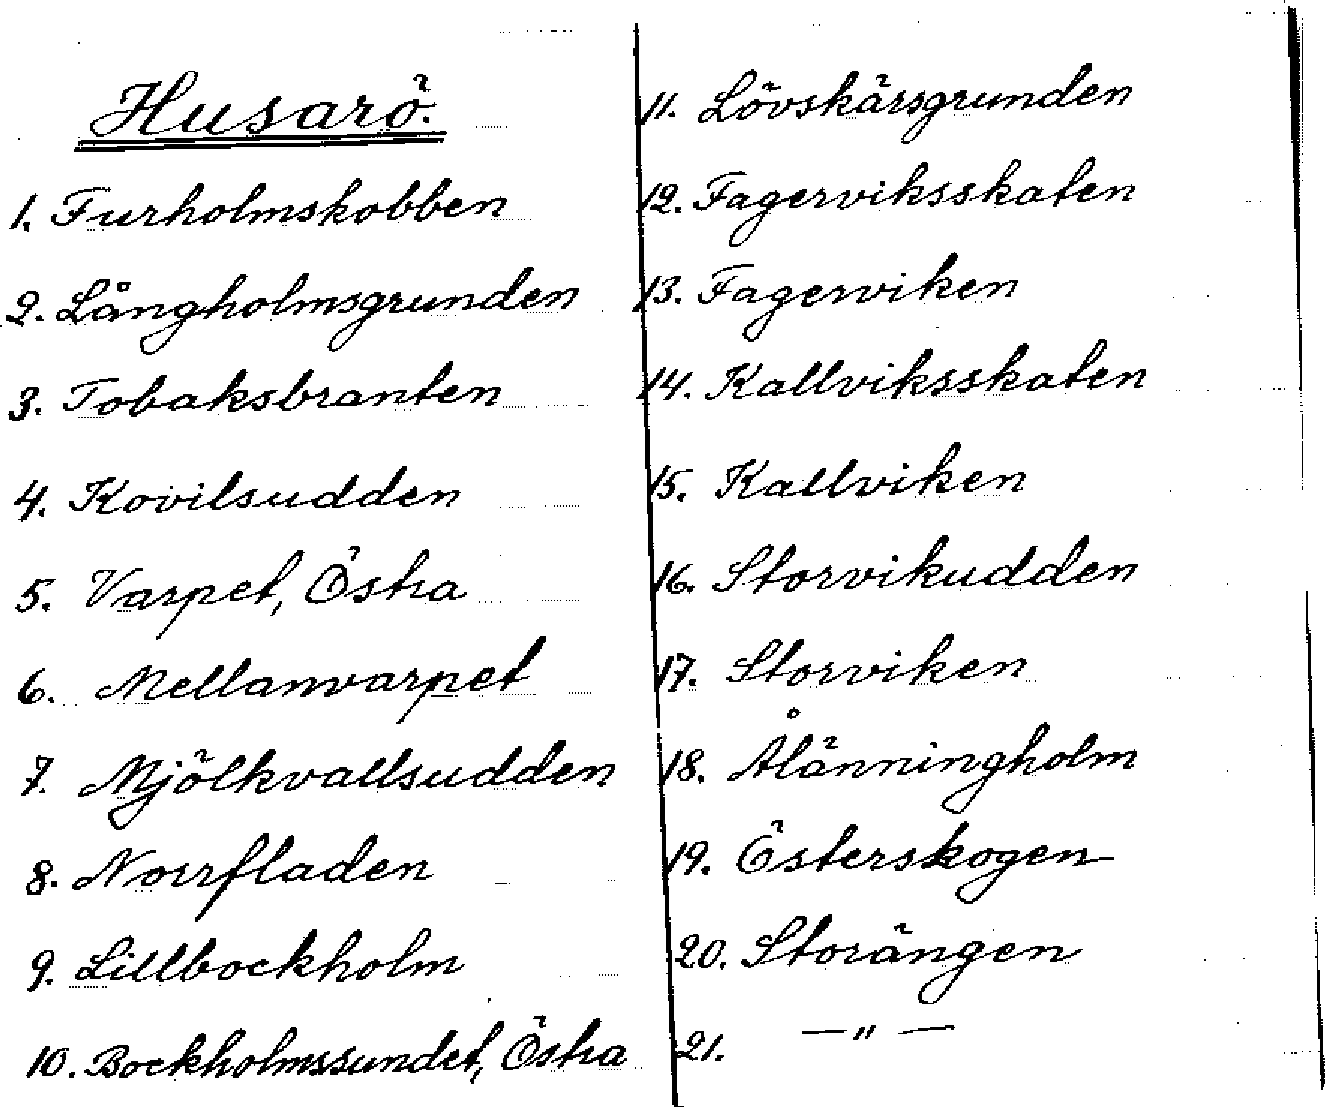 Husarö.
1. Furholmskobben
2. Långholmsgrunden
3. Tobaksbranten
4. Kovilsudden
5. Varpet, Östra
6. Mellanvarpet
7. Mjölkvallsudden
8. Norrfladen
9. Lillbockholm
10. Bockholmssundet, Östra
11. Lövskärsgrunden
12. Fagerviksskaten
13. Fagerviken
14. Kallviksskaten
15. Kallviken
16. Storvikudden
17. Storviken
18. Ålänningholm
19. Österskogen
20. Storängen
21. —〃—